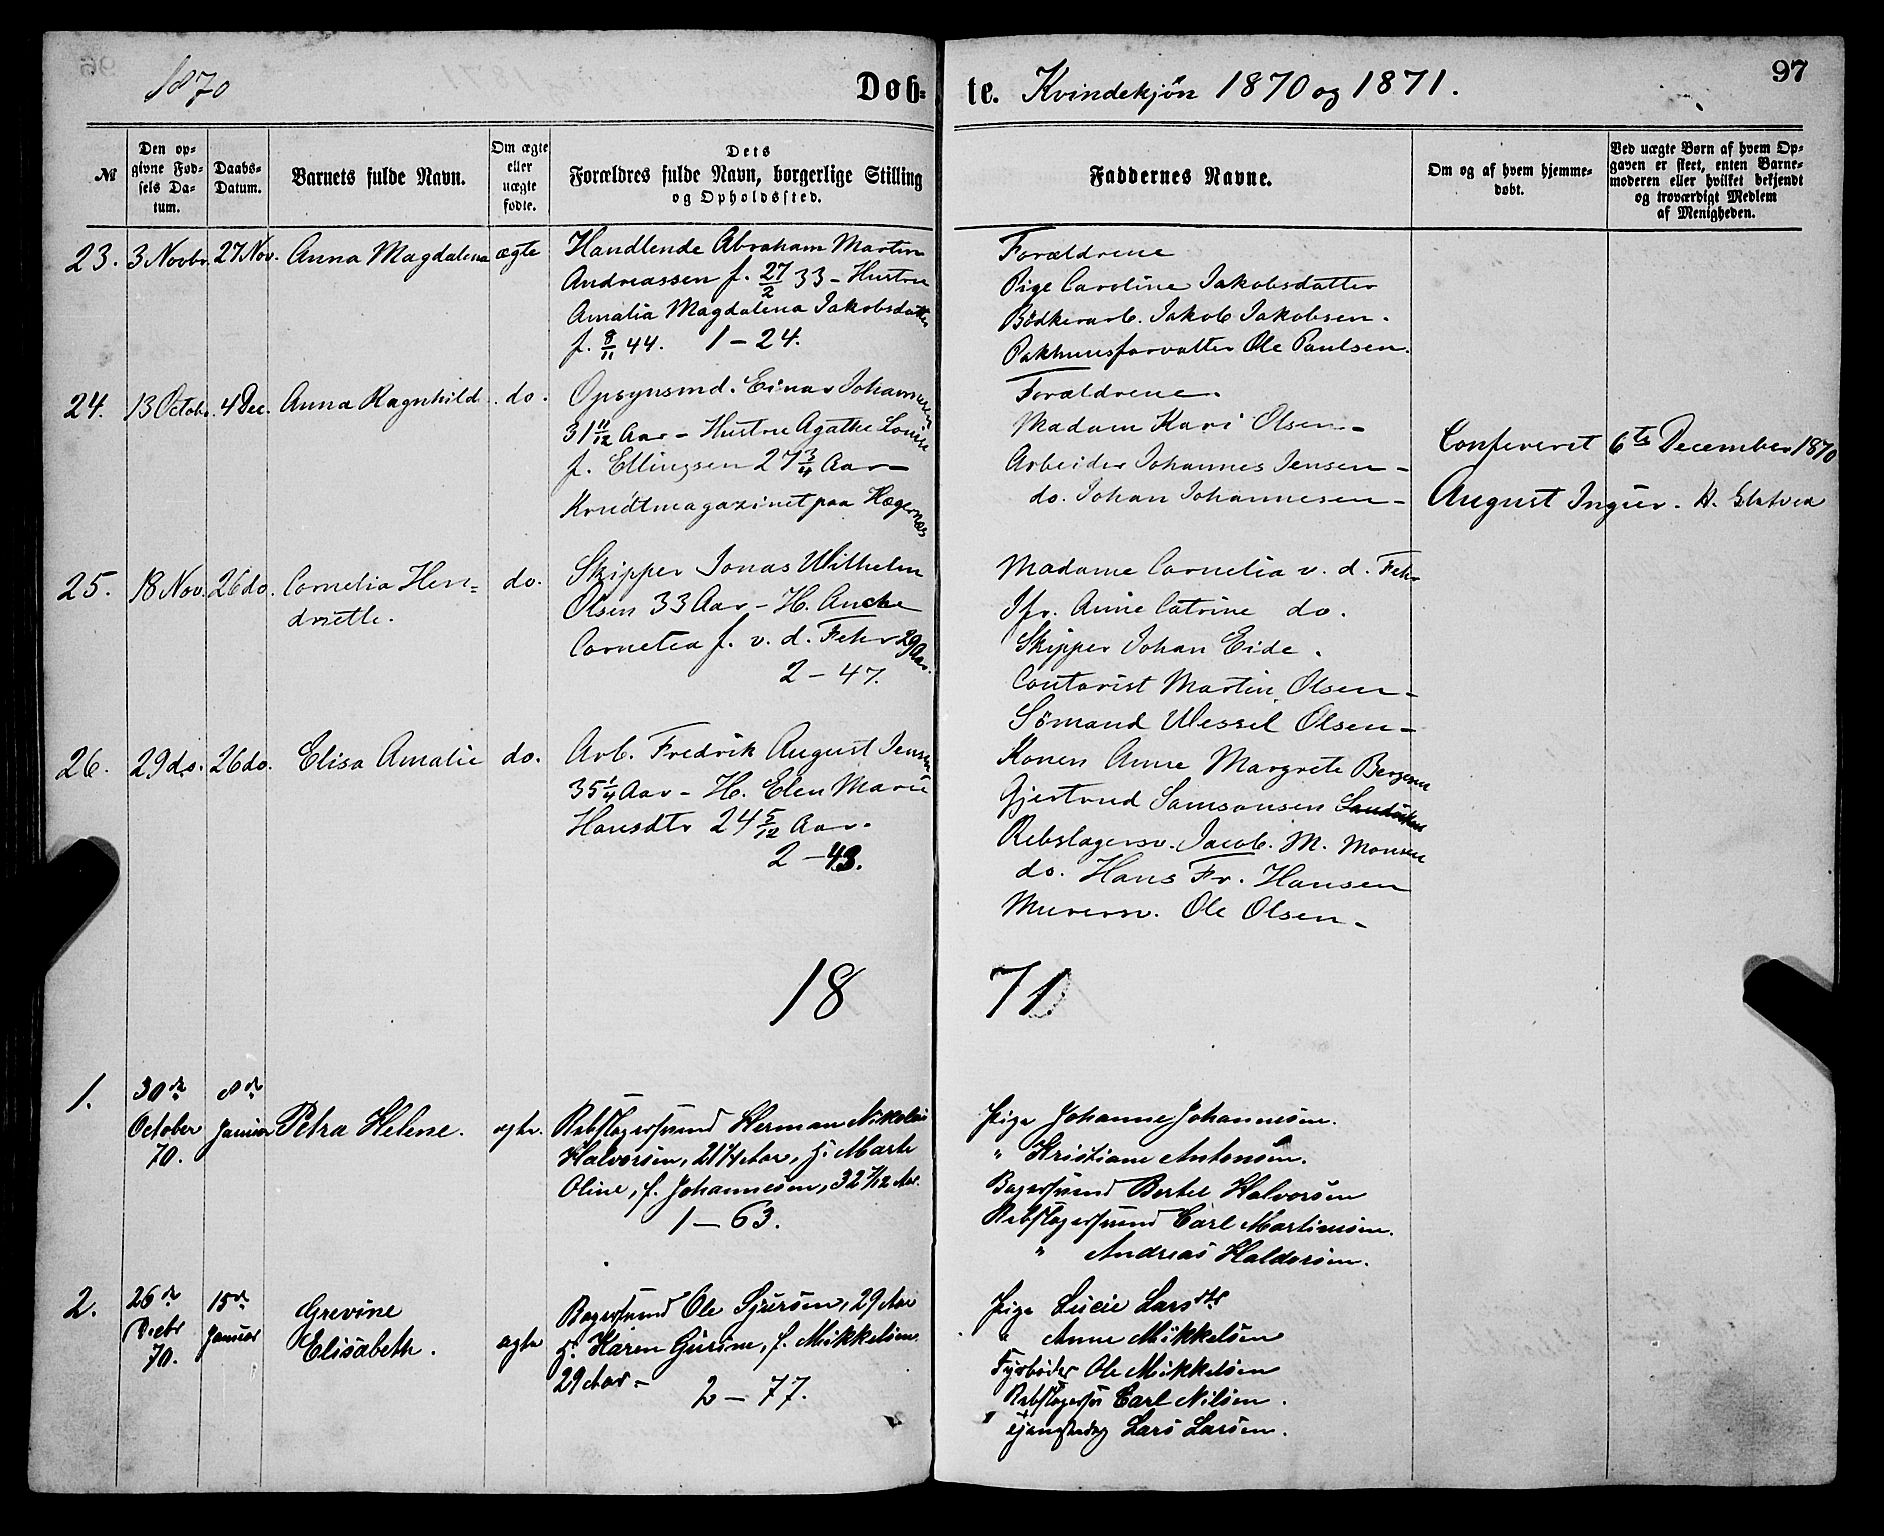 1870
Døb=
te. Kvindekjön 1870 og 1871.
97
№
Den op-
givne Fød-
sels Da-
tum.
Daabs-
Datum.
Barnets fulde Navn.
Om ægte
eller
uægte
fødte.
Dets
Forældres fulde Navn, borgerlige Stilling
og Opholdssted.
Faddernes Navne.
Om og af hvem hjemme-
døbt.
Ved uægte Børn af hvem Op-
gaven er skeet, enten Barne-
moderen eller hvilket bekjendt
og troværdigt Medlem
af Menigheden.
23. 3 Novbr. 27 Nov. Anna Magdalena ægte
Handlende Abraham Martin
Andreassen f. 27/2 33 - Hustru
Amalia Magdalena Jakobsdatter
f. 8/11 44. 1 - 24.
Forældrene
Pige Caroline Jakobsdatter
Bödkerarb. Jakob Jakobsen.
Pakhuusforvalter Ole Paulsen.
24. 13 Octobr. 4 Dec. Anna Ragnhild do.
Opsynsmd. Einar Johannesen
31 11/12 Aar - Hustru Agathe Louise
f. Ellingsen 27 3/4 Aar -
Krudtmagazinet paa Hægernæs
Forældrene.
Madam Kari Olsen -
Arbeider Johannes Jensen -
do. Johan Johannesen -
Confereret 6te December 1870
August Ingier. H.
25. 18 Nov. 26 do. Cornelia Hen=
driette.
do.
Skipper Jonas Wilhelm
Olsen 33 Aar - H. Anche
Cornelia f. v. d. Fehr 29 Aar.
2 - 47.
Madame Cornelia v. d. Fehr
Jfr. Anne Catrine do.
Skipper Johan Eide.
Contorist Martin Olsen -
Sömand Wessel Olsen -
26. 29 do. 26 do. Elisa Amalie do.
Arb. Fredrik August Jensen
35 1/4 Aar - H. Elen Marie
Hansdtr 24 5/12 Aar.
2 - 43.
Konen Anne Margrete Bergesen
Gjertrud Samsonsen
Rebslagersv. Jacob. M. Monsen
do. Hans Fr. Hansen
Murersv. Ole Olsen -
18 71
1. 30te
October
70.
8de
Januar
Petra Helene. ægte.
Rebslagersvend Herman Nikolai
Halvorsen, 21 1/4 Aar, H. Marte
Oline, f. Johannesen, 32 7/12 Aar.
1 - 63.
Pige Johanne Johannesen.
" Kristiane Antonsen.
Bagersvend Bertel Halvorsen
Rebslagersvend Carl Martinsen.
" Andreas Haldorsen.
2. 26de
Decbr
70.
15de
Januar
Grevine
Elisabeth.
ægte
Bagersvend Ole Sjursen, 29 Aar
H. Karen Gurine, f. Mikkelsen
29 Aar -
2 - 77.
Pige Lucie Larsdtr
" Anne Mikkelsen
Fyrbøder Ole Mikkelsen
Rebslagersv Carl Nilsen.
Lars Larsen.